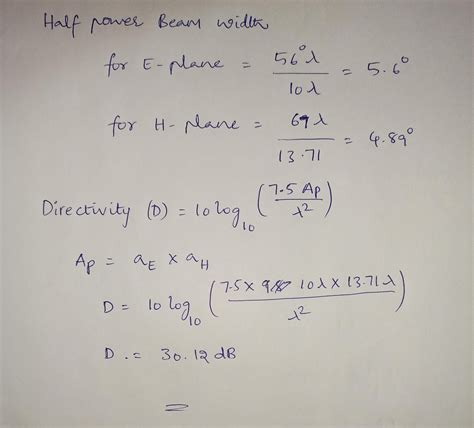 Half power Beam width
for E-plane = 56°λ / 10λ = 5.6°
for H-plane = 69λ / 13.71 = 4.89°
Directivity (D) = 10 log₁₀ (7.5 Ap / λ²)
Ap = aE x aH
D = 10 log₁₀ (7.5 x 10λ x 13.71λ / λ²)
D . = 30.12 dB